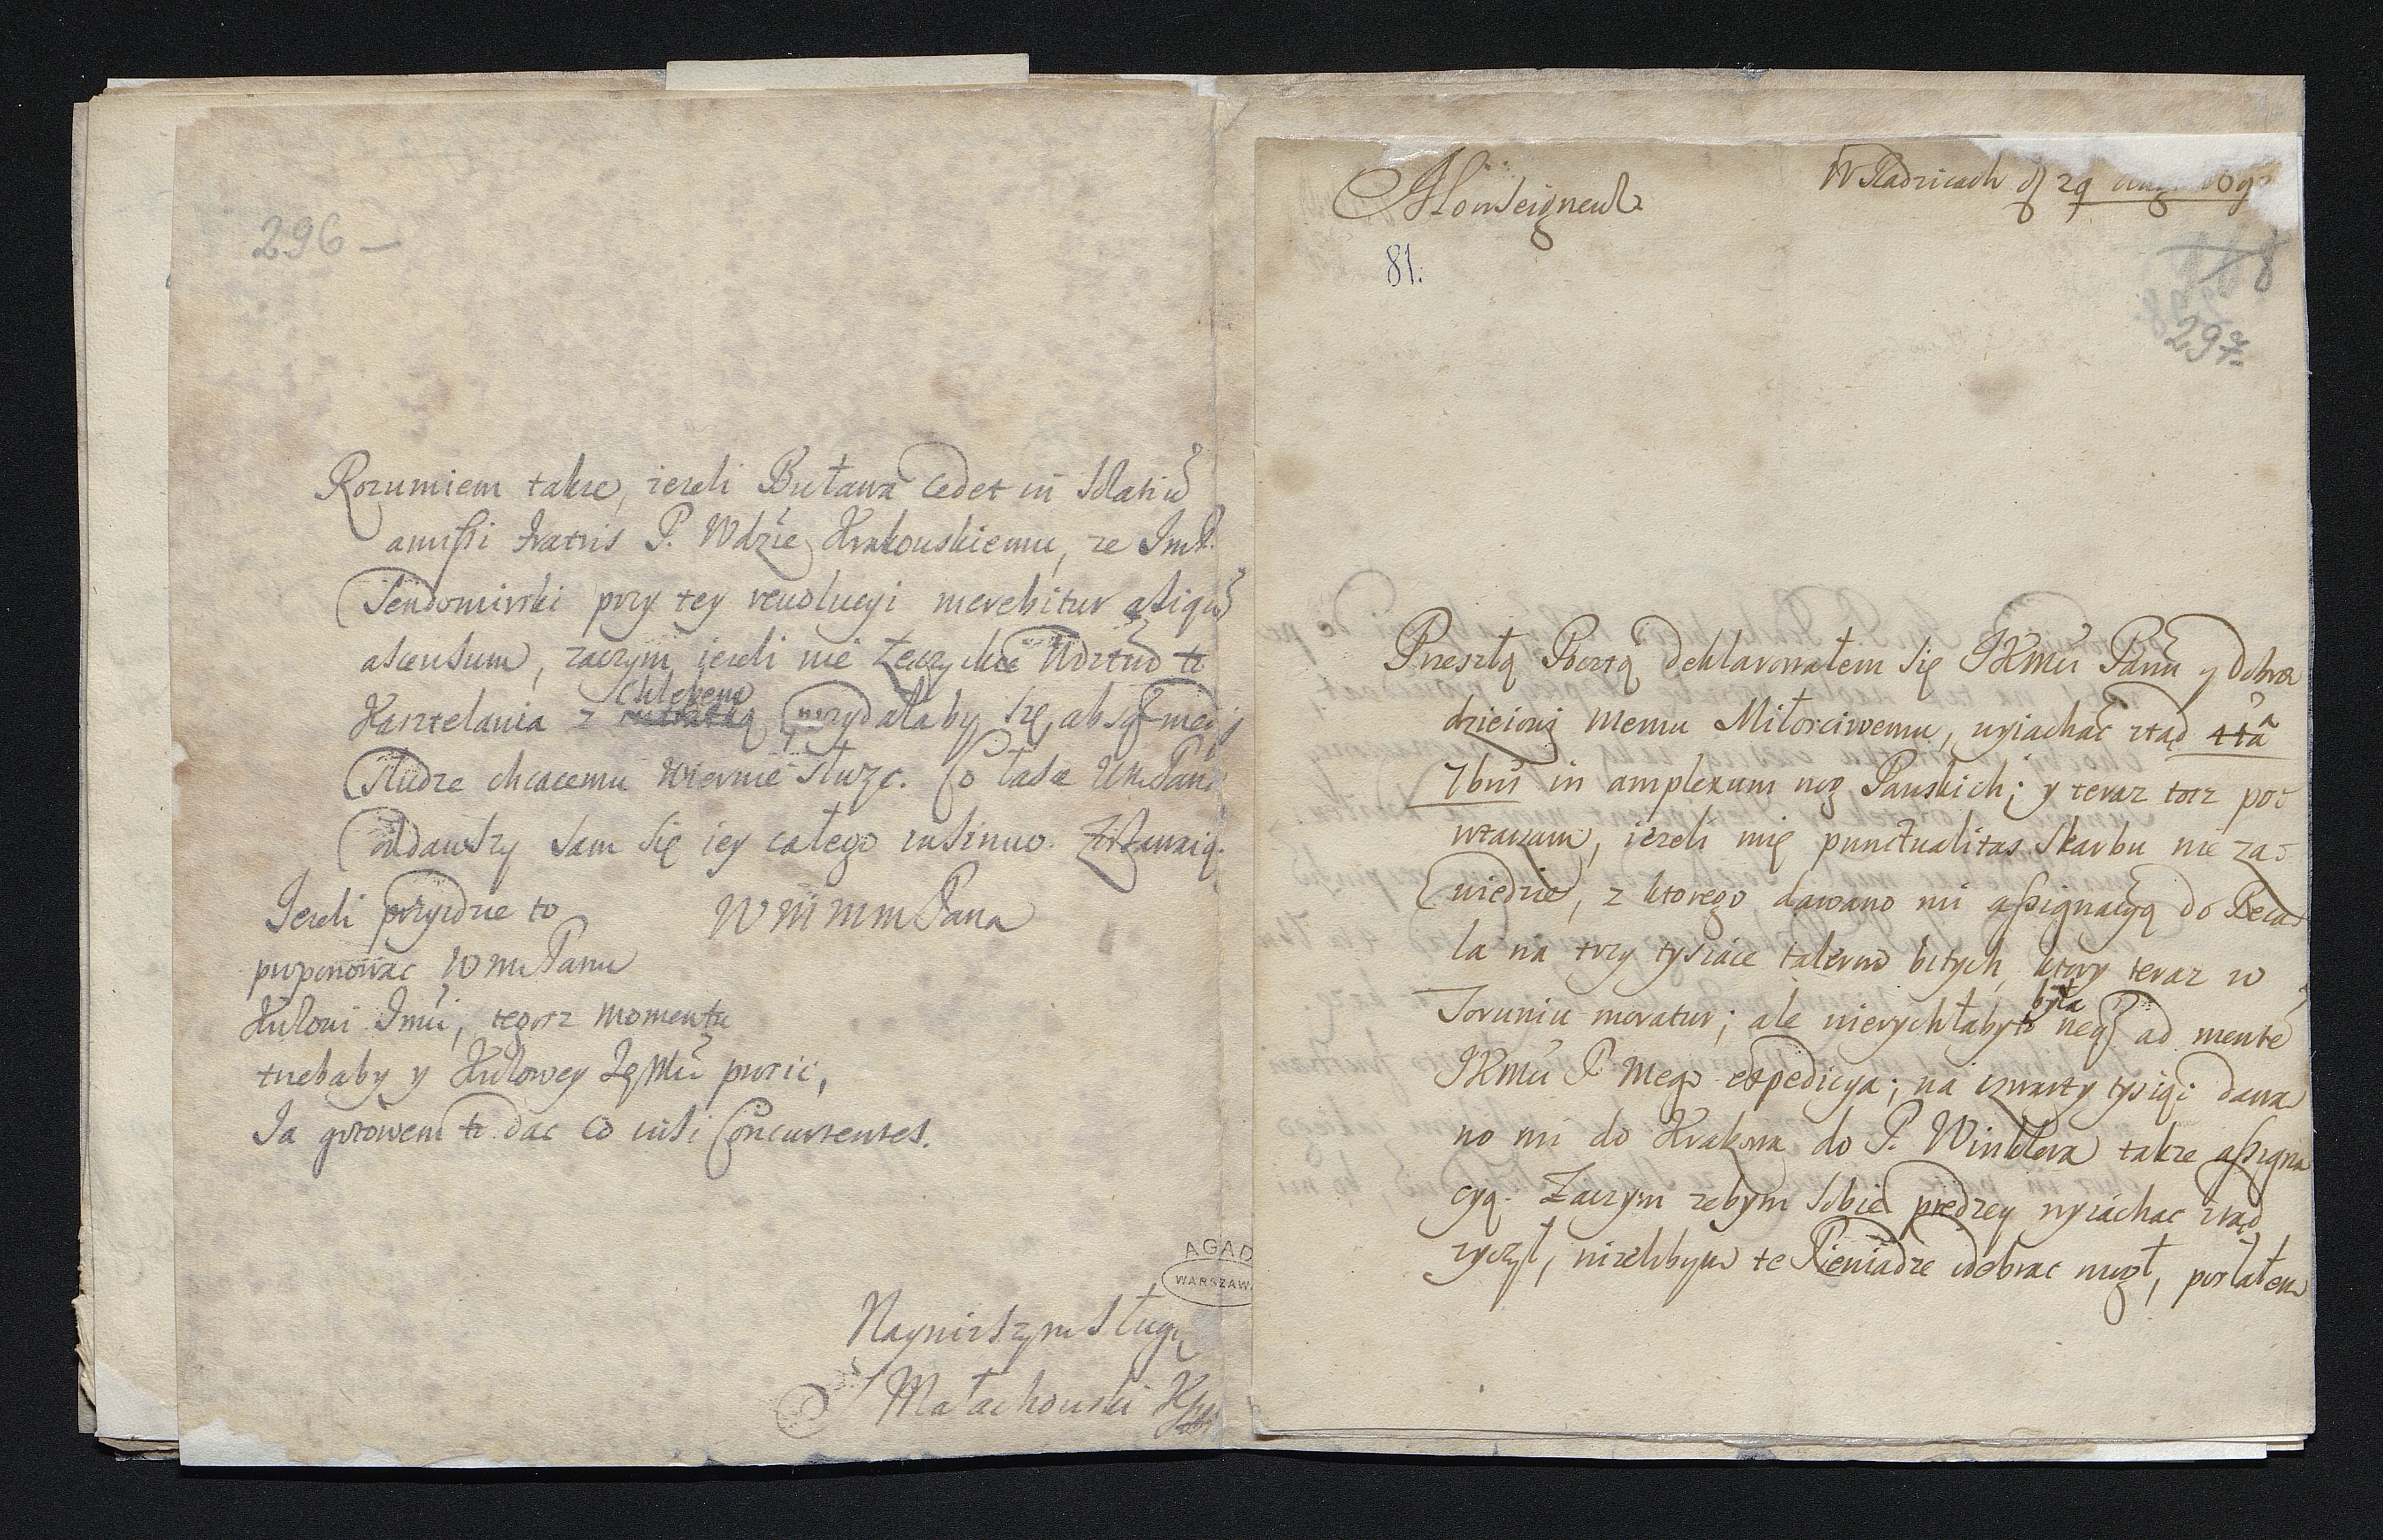 296 —
Rozumiem takze, iezeli Buława cedet in Solatiũ
amissi Fratris P. Wdzie Krakowskiemu, ze ImP.
Sendomirski przy tey rewolucyi merebitur aliquẽ
ascensum, zaczym iezeli nie Łęczyckie Wdztwo to
Kasztelania z Chlebem przydałaby się, absq medijs
Słudze chcacemu wiernie słuzyc. Co łasce WmPana
oddawszy sam się iey całego insinuo. Zostawaiąc
WMMM Pana
Jezeli przyidzie to
proponowac WmPanu
Krolowi Jmci, tegosz momentu
trzebaby y Krolowey JeyMci prosic,
Ja gotowem to dac co insi Concurrentes.
Nayniszszym Sługą
Małachowski
AGAD
WARSZAWA
Monseigneur
W Radzicach d 29
81.
118
298
297
Przeszłą Pocztą deklarowałem się JKMci Panu y Dobro
dzieiowi memu Miłosciwemu, wyiachac ztąd 4tâ
7bris in amplexum nog Panskich; y teraz tosz po=
wtarzam, iezeli mię punctualitas Skarbu nie za=
wiedzie, z ktorego dawano mi assignacyą do Beca=
la na trzy tysiące talerow bitych, ktory teraz w
Toruniu moratur; ale nierychłaby była neq ad mentẽ
JKMci P. mego expedicya; na czwarty tysiąc dawa
no mi do Krakowa do P. Winklera takze assigna
cyą. Zaczym zebym sobie prędzey wyiachac ztąd
zyczył, nizelibym te Pieniądze odebrac mogł, posłałem